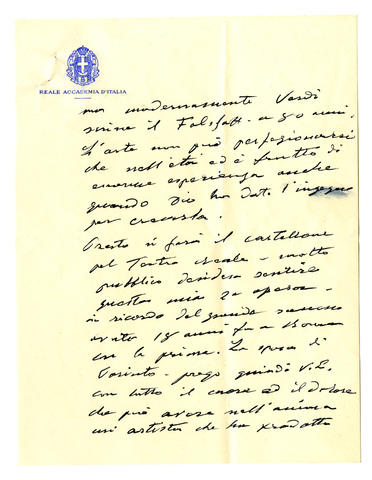 REALE ACCADEMIA D'ITALIA
ma modernamente Verdi
scrisse il Falstaff a 80 anni.
L'arte non può perfezionarsi
che nell'età ed è frutto di
esperienza anche
quando Dio ha dato l'ingegno
per crearla.
Presto si farà il cartellone
pel Teatro Reale - molto
pubblico desidera sentire
questa mia 2a opera -
in ricordo del grande successo
avuto 18 anni fa a Roma
con la prima. La sposa di
Corinto - prego quindi V.E.
con tutto il cuore ed il dolore
che può avere nell'anima
un artista che ha prodotto